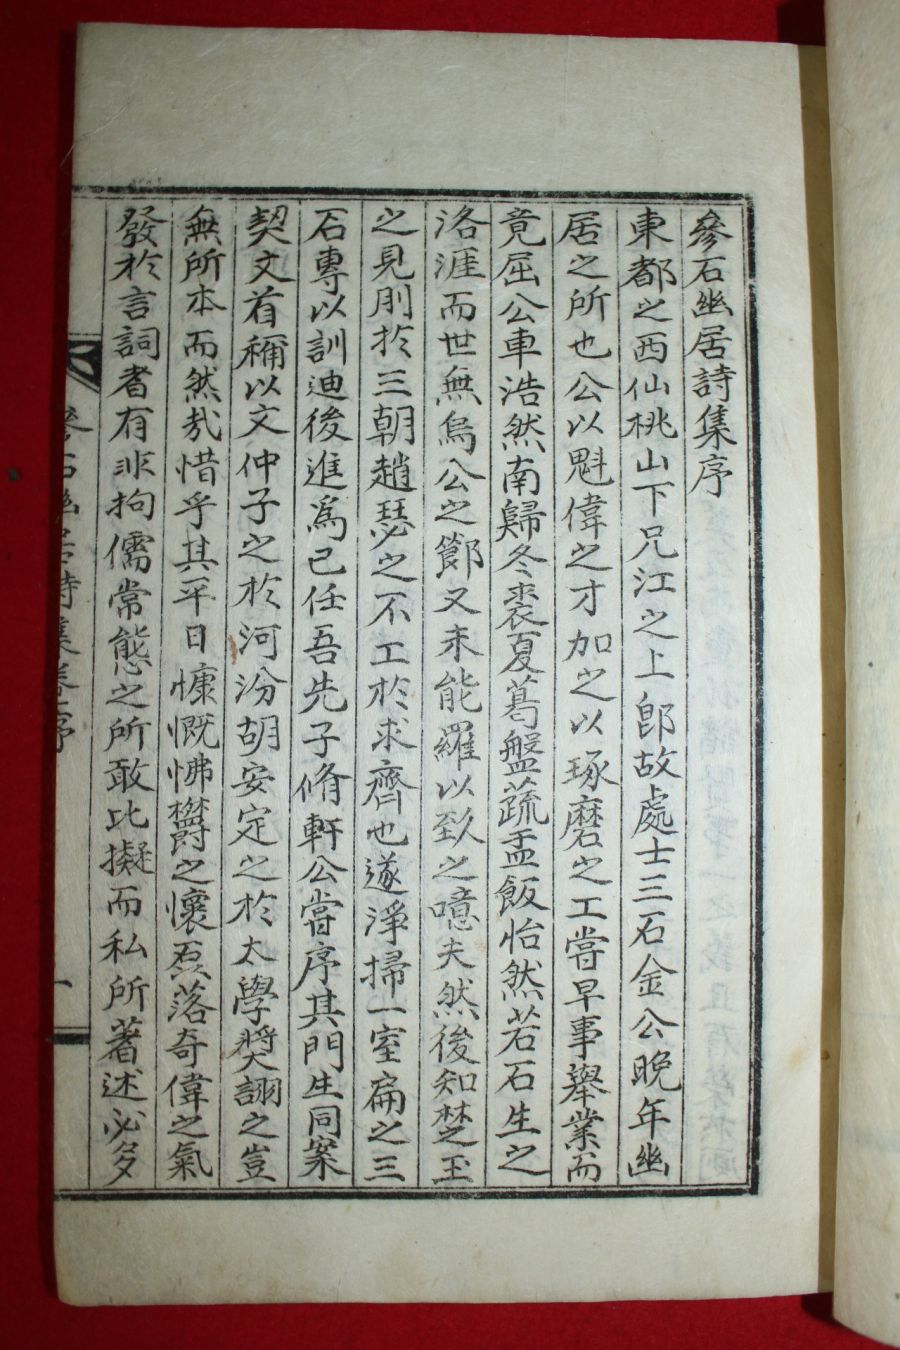 參石幽居詩集序
東都之西仙桃山下兄江之上卽故處士三石金公晩年幽
居之所也公以魁偉之才加之以琢磨之工嘗早事擧業而
竟屈公車浩然南歸冬裘夏葛盤蔬盂飯怡然若石生之
洛涯而世無烏公之節又未能羅以致之噫夫然後知楚玉
之見刖於三朝趙瑟之不工於求齊也遂淨掃一室扁之三
石專以訓迪後進爲已任吾先子脩軒公嘗序其門生同案
契文首稱以文仲子之於河汾胡安定之於太學奬詡之豈
無所本而然哉惜乎其平日慷慨怫鬱之懷磊落奇偉之氣
發於言詞者有非拘儒常態之所敢比擬而私所著述必多
參石幽居詩集卷之序
一